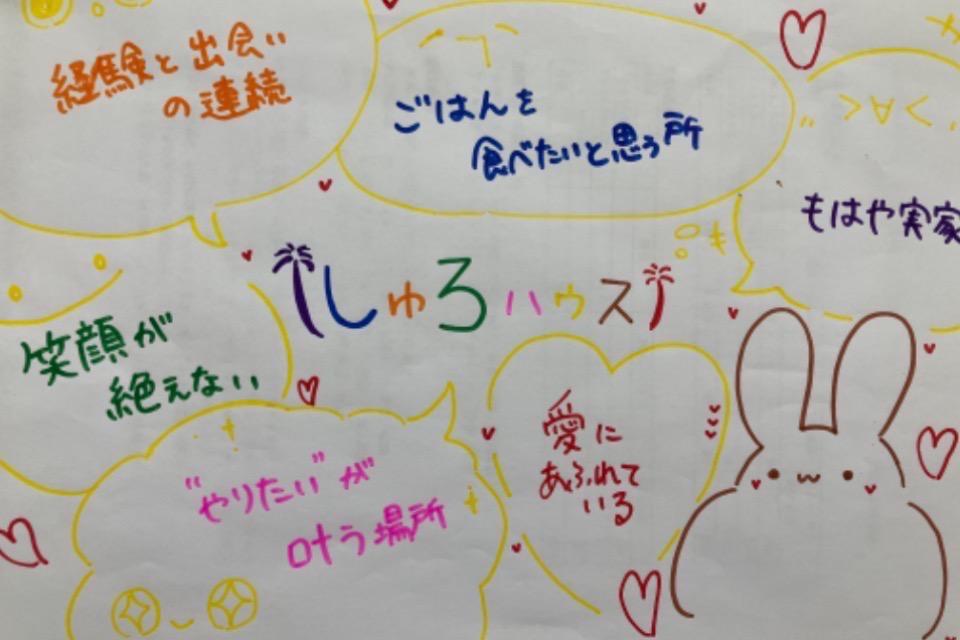 経験と出会い
の連続
ごはんを
食べたいと思う所
もはや実家
しゅろハウス
笑顔が
絶えない
"やりたい"が
叶う場所
愛に
あふれて
いる